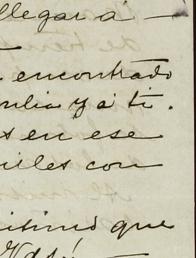 llegar á —
encontrado
ulia y á ti.
s en ese
uiles con
isimo que